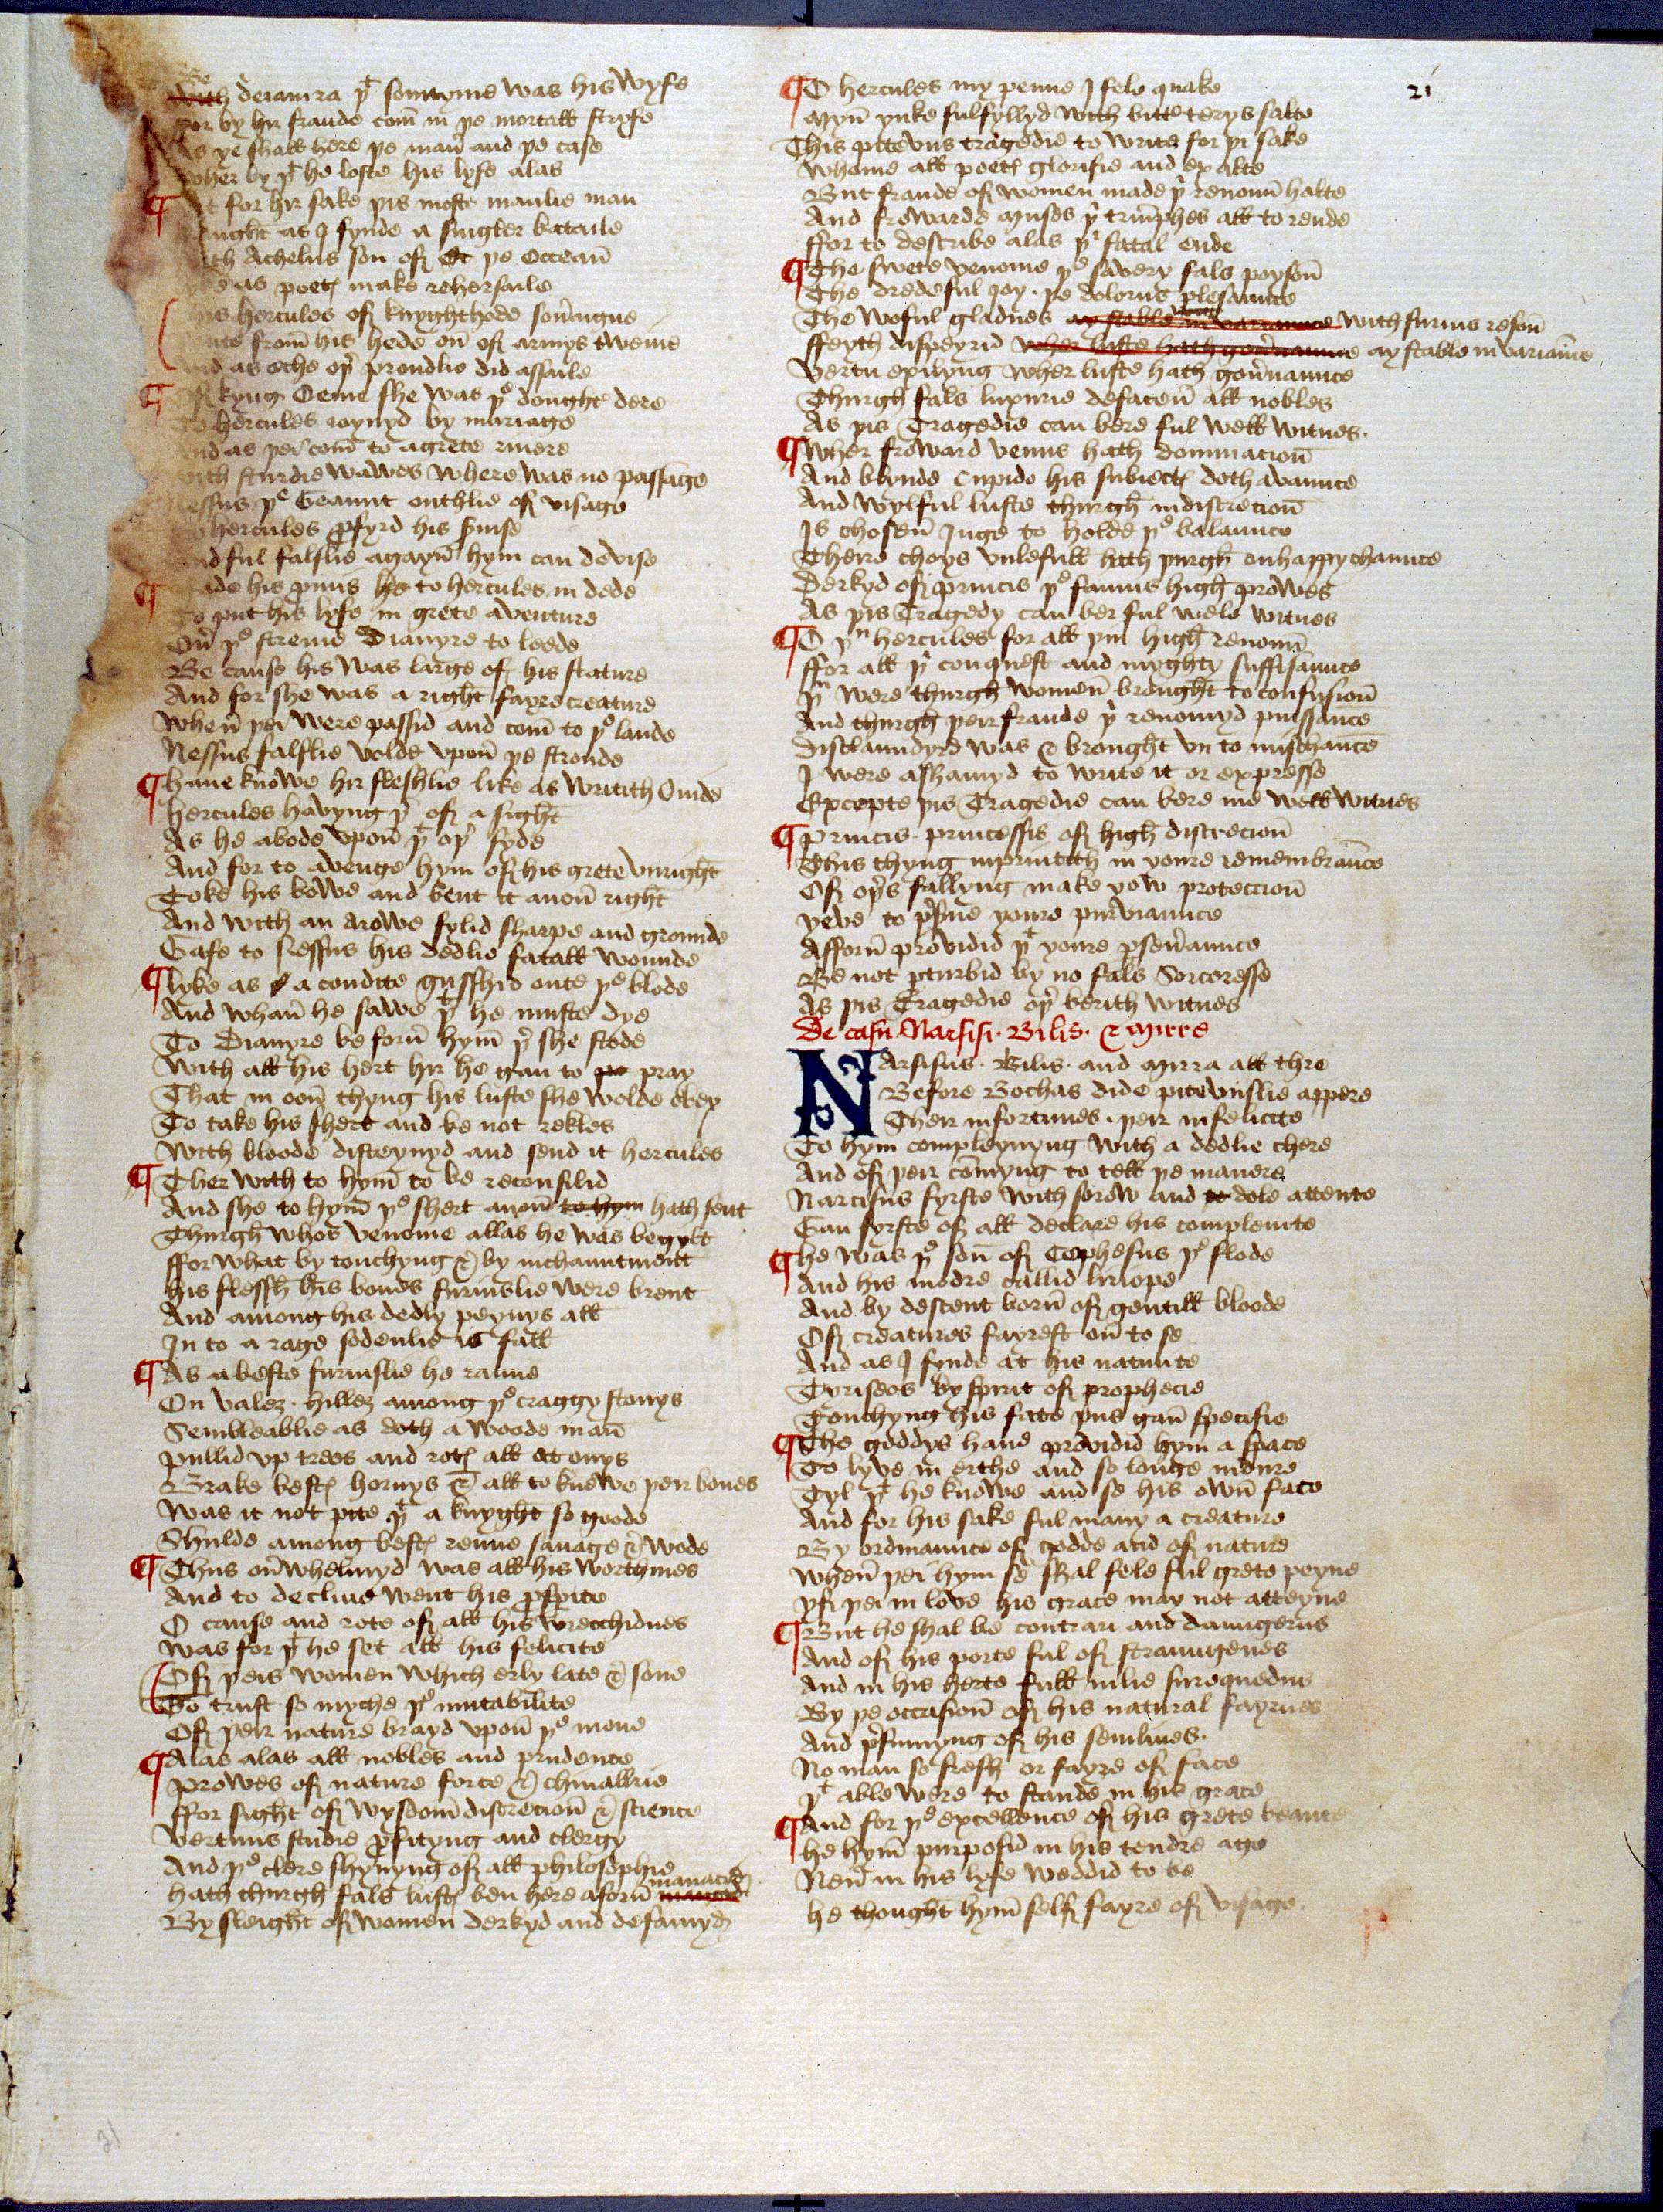 deianira þt somtyme was his wyfe
for by hir fraude com in þe mortall stryfe
as ye shall here þe maner and þe case
wher by þt he loste his lyfe alas
for hir sake þis moste manlie man
as I fynde a singler bataile
with Achelus son of þe Occean
as poetes make rehersaile
this hercules of knyghthode souereigne
from his hede on of armys tweine
and as eche oþr proudlie did assaile
¶ Of kyng Oeme she was þe doughter dere
To hercules ioynyd by mariage
And as þei com to a grete riuere
With sturdie wawes where was no passage
Nessus þe Geaunt outhlie of visage
To hercules profyrd his seruise
And ful falslie agayn hym can devise
¶ Made his promis to hercules in dede
To put his lyfe in grete aventure
Ouer þe streme Dianyre to leede
Be cause his was large of his stature
And for she was a right fayre creature
When þei were passid and com to þe lande
Nessus falslie volde vpon þe stronde
¶ haue knowe hir fleshlie like as writith Ouide
hercules havyng þerof a sight
As he abode vpon þt oþr syde
And for to avenge hym of his grete vnright
Toke his bowe and bent it anon right
And with an arowe fylid sharpe and grounde
Gafe to Nessus his dedlie fatall wounde
¶ lyke as a condite gusshid oute þe blode
And whan he sawe þt he muste dye
To Dianyre be forn hym þer she stode
With all his hert hir he gan to pray
That in oon thyng his luste she wolde obey
To take his shert and be not rekles
With bloode disteynyd and send it hercules
¶ Ther with to hym to be reconsilid
And she to hym þe shert anon to hym hath sent
Thurgh whos venome allas he was begylt
ffor what by touchyng & by inchauntment
his flessh his bones furiuslie were brent
And among his dedly peynys all
In to a rage sodenlie is fall
¶ As a beste furiuslie he ranne
On valez · hillez among þe craggy stonys
Sembleablie as doth a woode man
pullid vp trees and rotes all at onys
Brake bestes hornys & all to knewe þeir bones
Was it not pite þt a knyght so goode
Shulde among bestes renne sauage & wode
¶ Thus ouerwhelmyd was all his worthines
And to decline went his prosperite
O cause and rote of all his wrecchidnes
was for þt he set all his felicite
Of þeis women which erly late & sone
To trust so myche þe mutabilite
Of þeir nature brayd vpon þe mone
¶ Alas alas all nobles and prudence
prowes of nature force & chiuallrie
ffor sight of wysdom discrecion & science
Vertuus studie profityng and clergy
And þe clere shynyng of all philosophie
hath thurgh fals lustes ben here aforn manacid
By sleight of women derkyd and defamyd
21
¶ O hercules my penne I fele quake
myn ynke fulfyllyd with bitter terys salte
This pitevus tragedie to write for þi sake
whome all poetes glorifie and exalte
But fraude of women made þi renoun halte
And frowarde muses þi triumphes all to rende
ffor to describe alas þi fatal ende
¶ The swete venome þe savery fals poyson
The dredeful ioy · þe dolorus plesaunce
The woful gladnes ay stable in variaunce with furius reson
ffeyth dispeyrid wher luste hath gouernaunce ay stable in variaunce
Vertu exilyng wher luste hath gouernaunce
Thurgh fals luxurie defaceun all nobles
As þis Tragedie can bere ful well witnes.
¶ Wher froward Venus hath dominacion
And blynde Cupido his subiectes doth avaunce
And wylful luste thurgh indiscrecion
Is chosen Juge to holde þe balaunce
There choys vnlefull hath þurgh onhappy chaunce
Derkyd of princis þe famus high prowes
As þis Tragedy can ber ful wele witnes
¶ O þu hercules for all þin high renoun
ffor all þi conquest and myghty suffisaunce
þu were thurgh women brought to confusion
And thurgh þeir fraude þi renomyd puissance
Disclaundyrd was & brought vn to mischaunce
I were ashamyd to write it or expresse
Excepte þis Tragedie can bere me well witnes
¶ princis · princessis of high discrecion
This thyng inprintith in youre remembrance
Of oþrs fallyng make yow proteccion
yeve to preserue youre purviaunce
Afforn providid þt youre perseueraunce
Be not perturbid by no fals Sorceresse
As þis Tragedie oþr berith witnes
De casu Narsisi · Bilis · & Mirre
NArsisus · Bilis · and Mirra all thre
Before Bochas dide pitevuslie appere
Their infortunes · þeir infelicite
To hym compleynyng with a dedlie chere
And of þeir comyng to tell þe manere
Narcisus fyrste with sorow and dole atteinte
Gan fyrste of all declare his compleinte
¶ he was þe son of Cephesus þe flode
And his modre callid liriope
And by descent born of gentill bloode
Of creatures fayrest on to se
And as I fynde at his natiuite
Tyriseos by spirit of prophecie
Touchyng his fate þus gan specifie
¶ The goddys haue providid hym a space
To lyve in erthe and so longe indure
Tyl þt he knowe and se his own face
And for his sake ful many a creature
By ordinaunce of godde and of nature
When þei hym se shal fele ful grete peyne
yf þei in love his grace may not atteyne
¶ But he shal be contrari and daungerus
And of his porte ful of straungenes
And in his herte full inlie surequedus
By þe occasion of his natural fayrnes
And presumyng of his semlines.
No man so fresh or fayre of face
þt able were to stande in his grace
¶ And for þe excellence of his grete beaute
he hym purposid in his tendre age
Neuer in his lyfe weddid to be
he thought hym self fayre of visage.